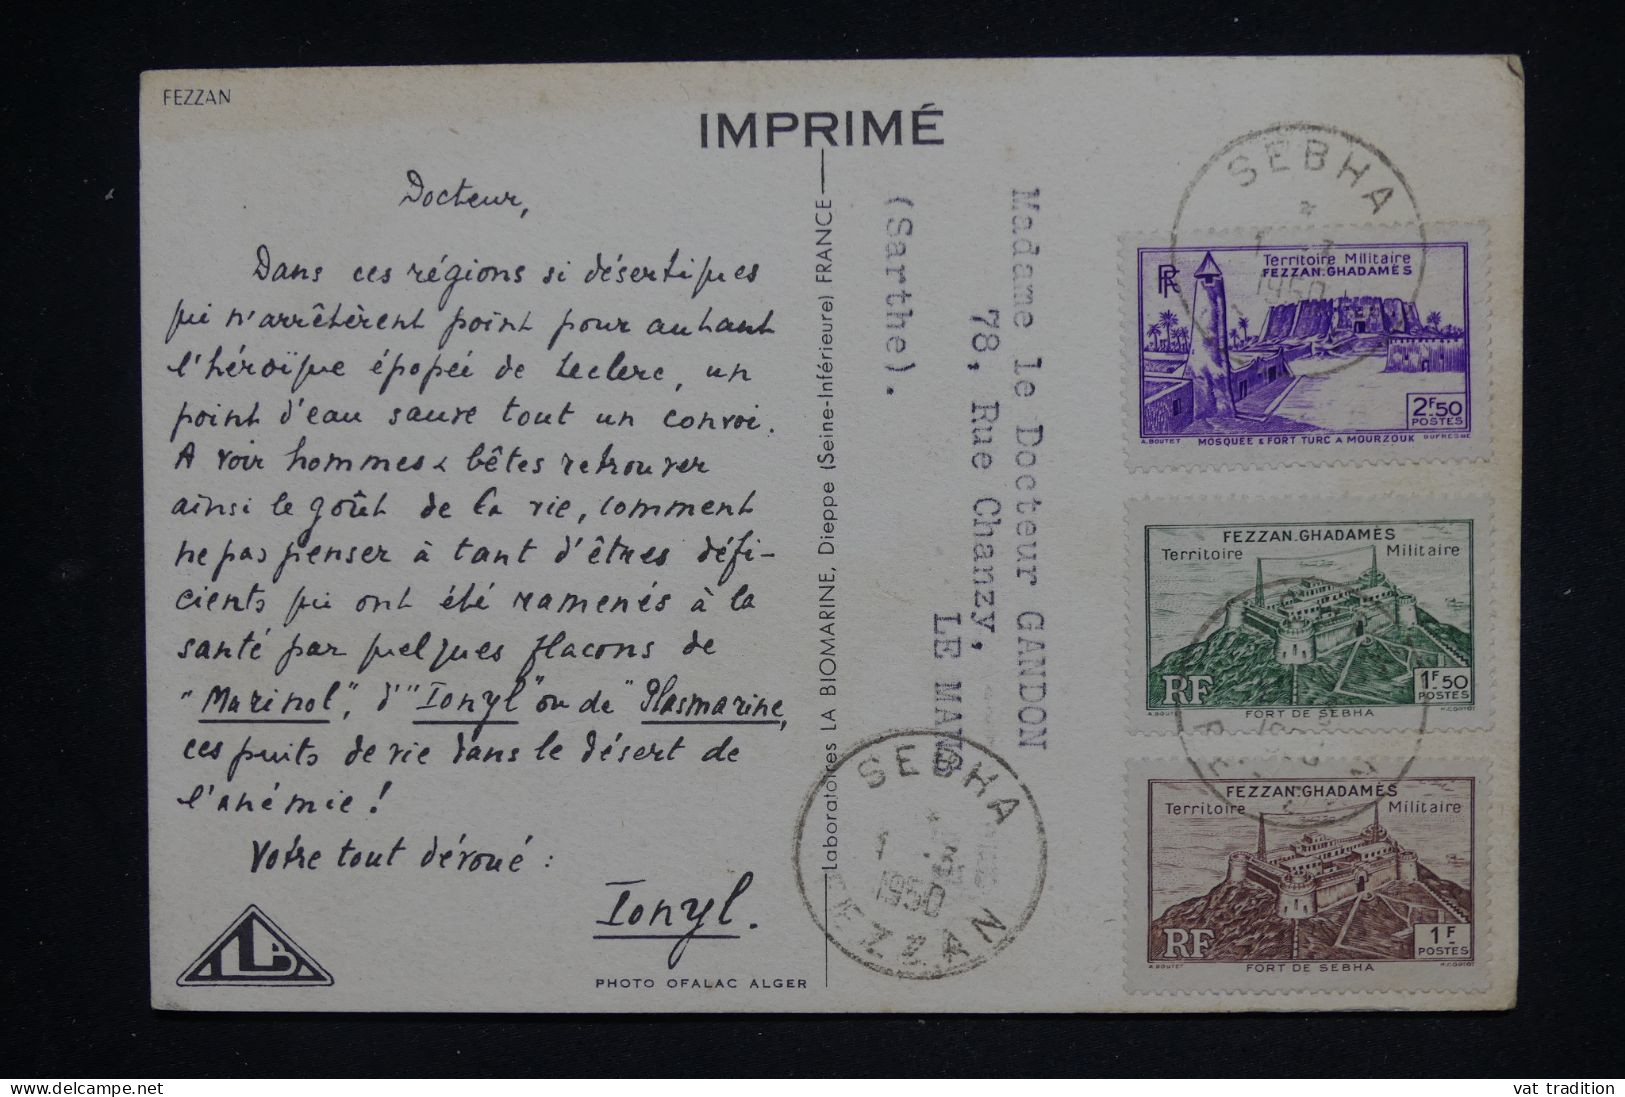 FEZZAN
IMPRIMÉ
Docteur,
Dans ces régions si désertiques
qui n'arrêtèrent point pour autant
l'héroïque épopée de Leclerc, un
point d'eau sauve tout un convoi.
A voir hommes & bêtes retrouver
ainsi le goût de la vie, comment
ne pas penser à tant d'êtres défi-
cients qui ont été ramenés à la
santé par quelques flacons de
"Marinol", d'"Ionyl" ou de "Plasmarine,
ces puits de vie dans le désert de
l'anémie!
Votre tout dévoué :
Ionyl.
LB
PHOTO OFALAC ALGER
Laboratoires LA BIOMARINE, Dieppe (Seine-Inférieure) FRANCE
Madame le Docteur GANDON
78, Rue Chanzy,
LE MANS
(Sarthe).
SEBHA
1
1950
FEZZAN
SEBHA
1
1950
RF
Territoire Militaire
FEZZAN.GHADAMÈS
2F.50
POSTES
A.BOUTET
MOSQUÉE & FORT TURC A MOURZOUK
DUFRESNE
FEZZAN.GHADAMÈS
Territoire Militaire
RF
1F.50
POSTES
FORT DE SEBHA
FEZZAN.GHADAMÈS
Territoire Militaire
RF
1F
POSTES
A.BOUTET
FORT DE SEBHA
vat tradition